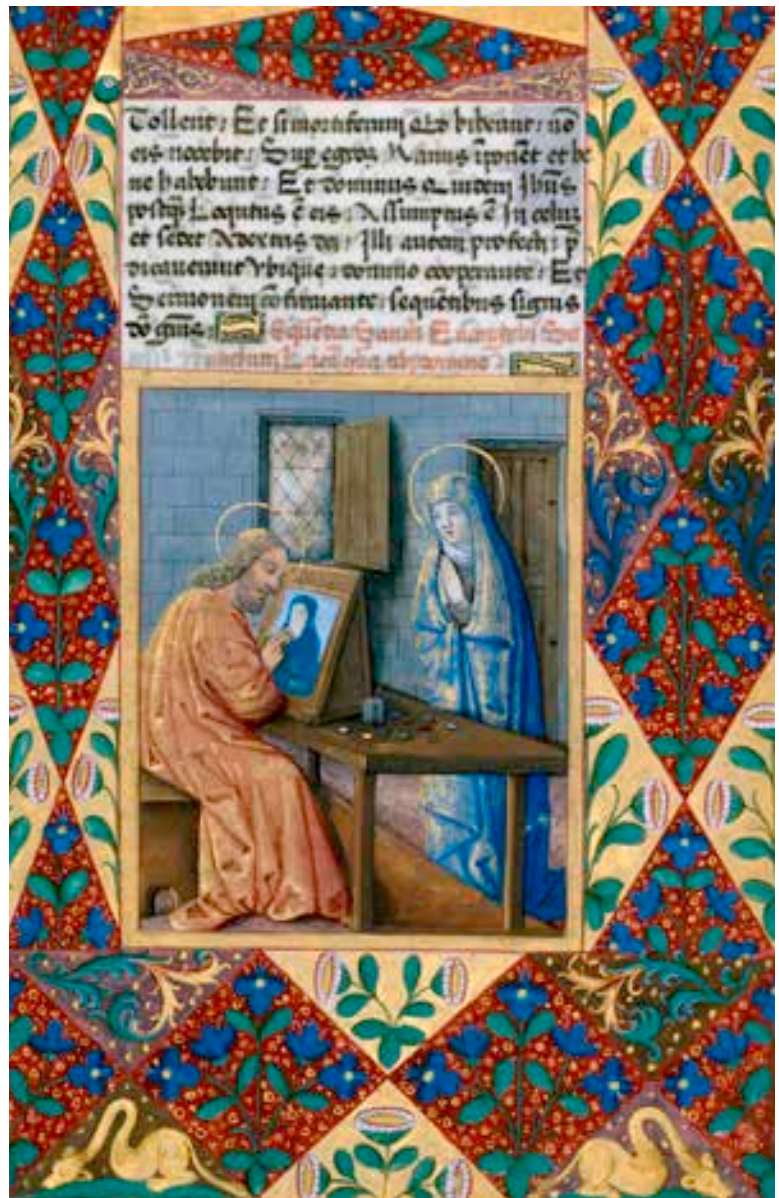 Tollent: Et si mortiferum biberint: nō
eis nocebit: Sup egros Manus īponēt et be
ne habebunt: Et dominus Quidem Jhūs
postq̄ Loqutus ē eis: Assumptus ē In celuz
et sedet A dextris dei: Illi autem profecti: p̄
dicauerunt Vbique: domino cooperante: Et
Sermonem cōfirmante: sequētibus signis
dō gr̄as: